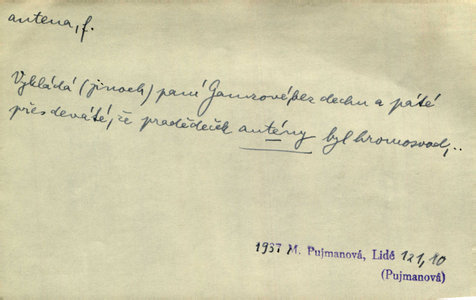 antena, f.
Vykládá (jinoch) paní Gamzové bez dechu a páté
přes deváté, že pradědeček antény byl hromosvod,..
1937 M. Pujmanová, Lidé 121,10
(Pujmanová)